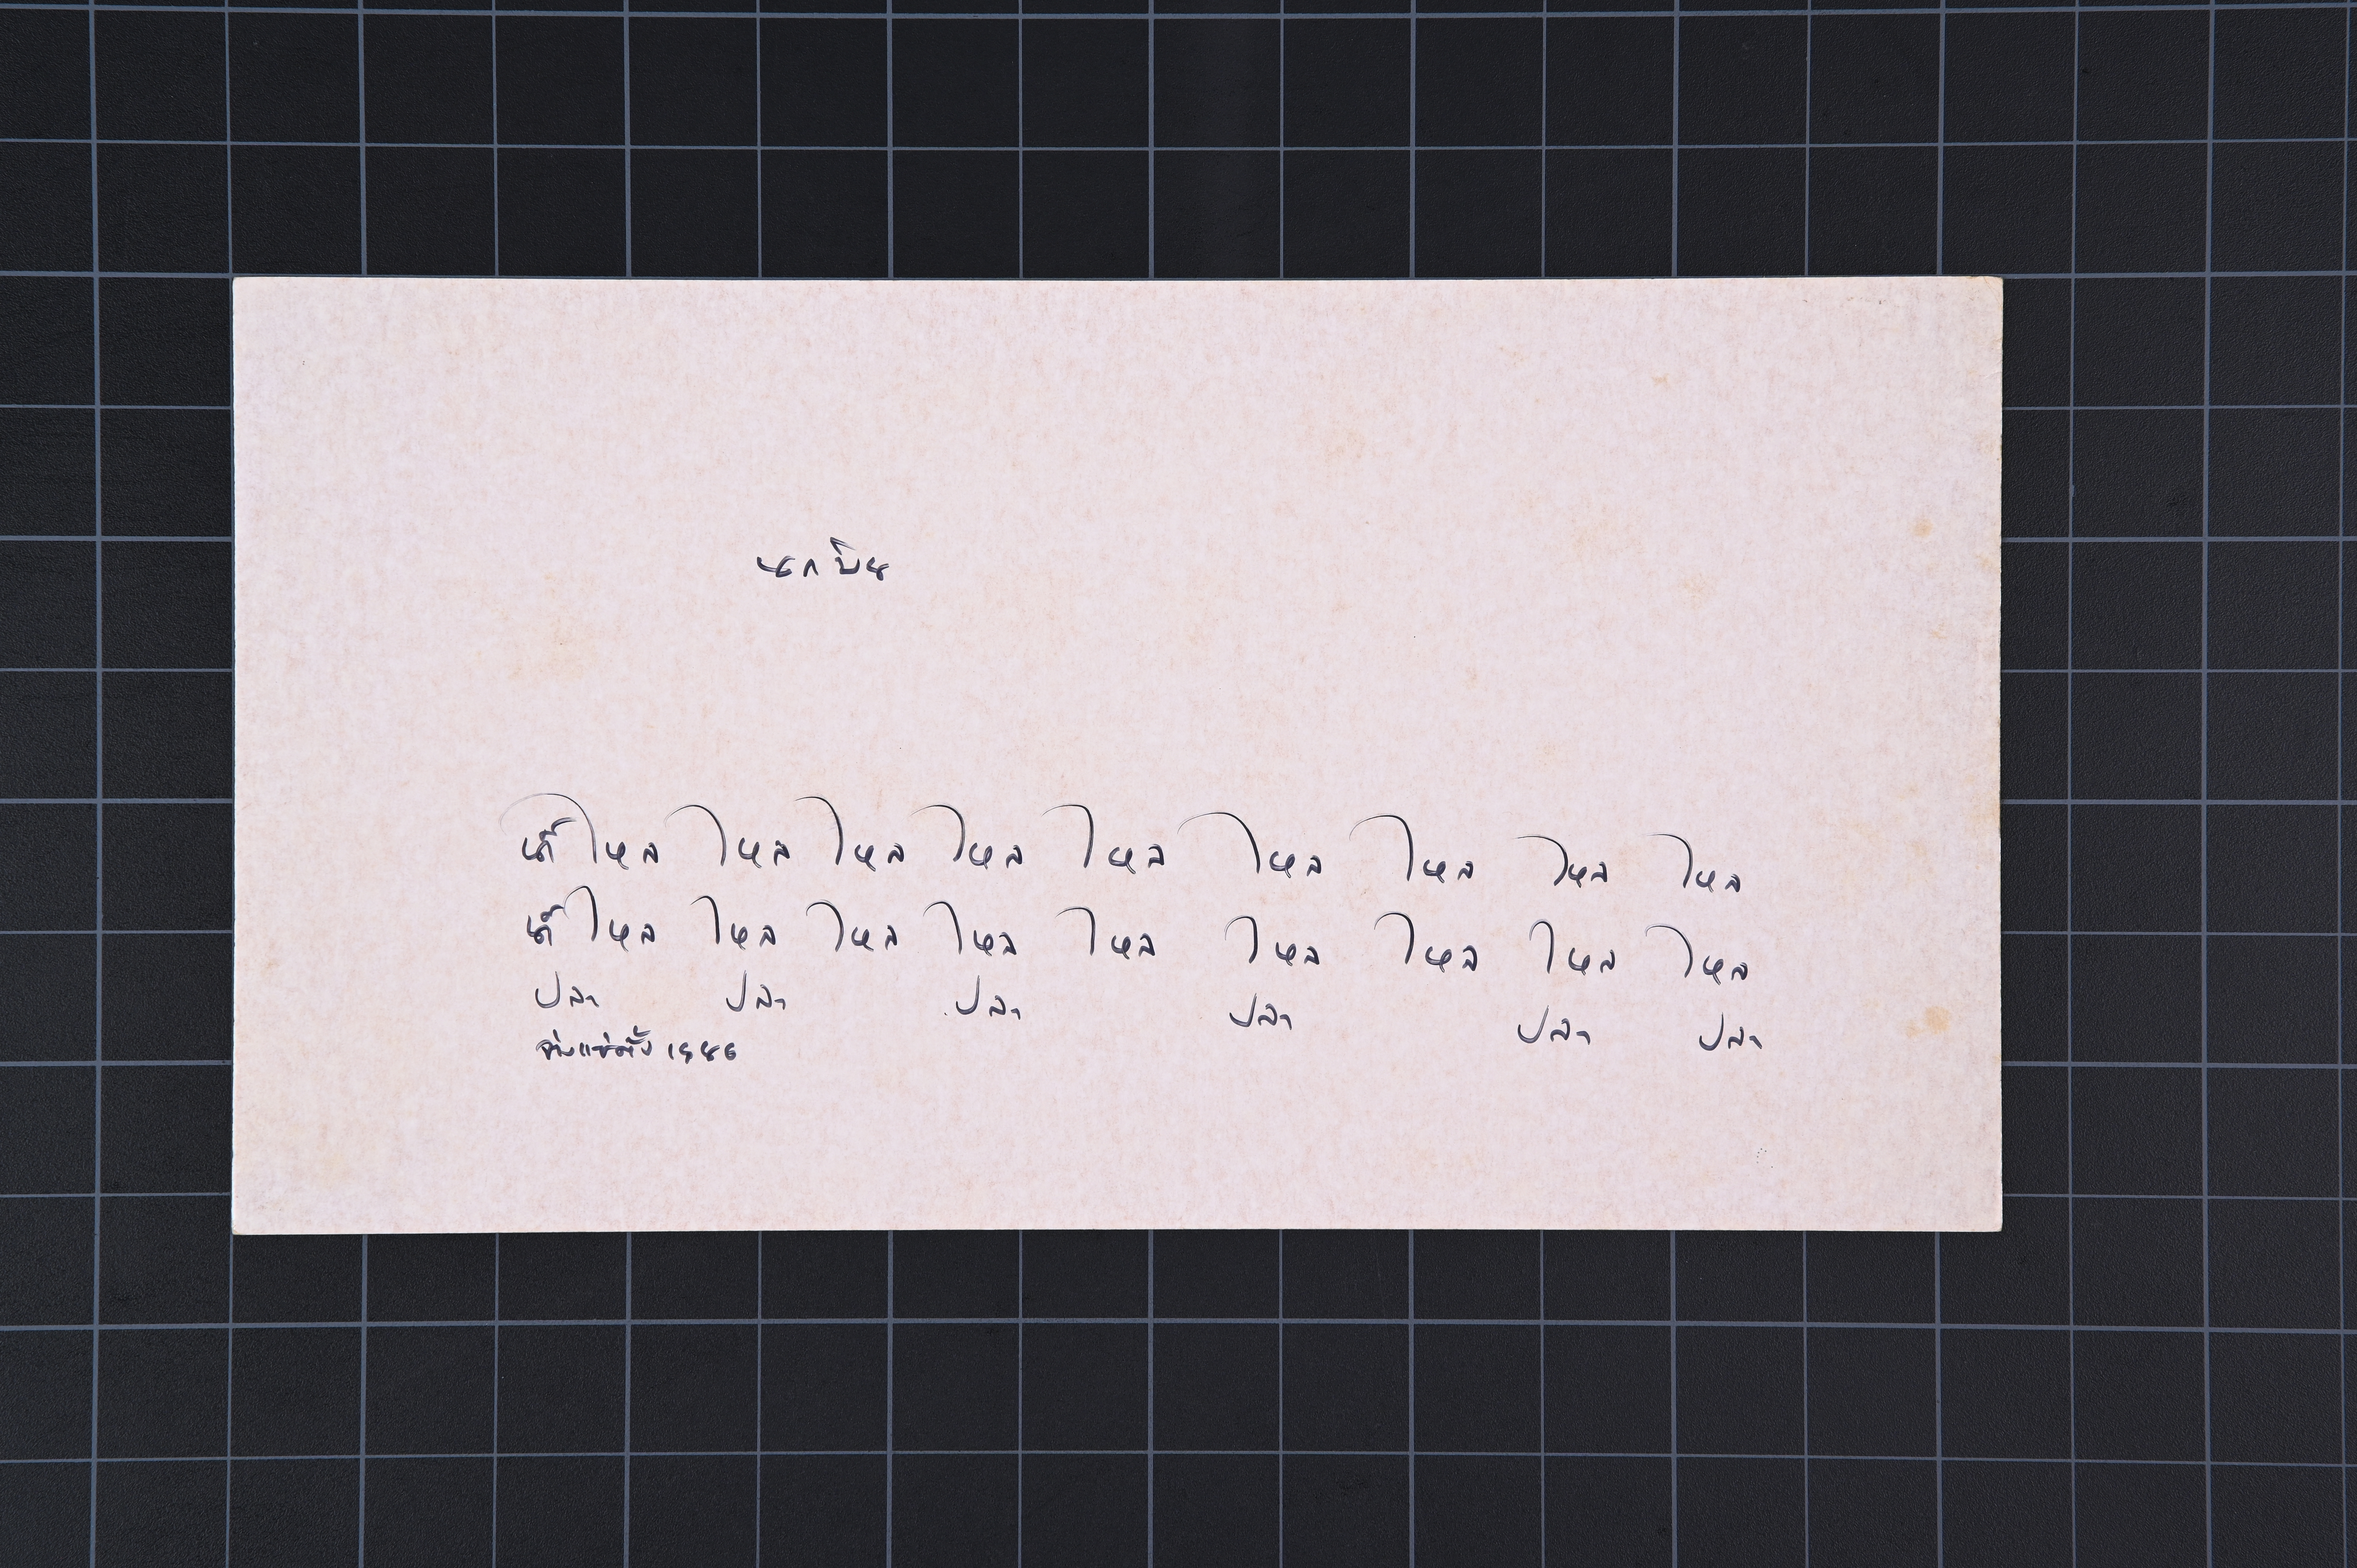 นกบิน
น้ำไหล ไหล ไหล ไหล ไหล ไหล ไหล ไหล ไหล
น้ำไหล ไหล ไหล ไหล ไหล ไหล ไหล ไหล ไหล
ปลา ปลา ปลา ปลา ปลา ปลา
จ่างแซ่ตั้ง 1986